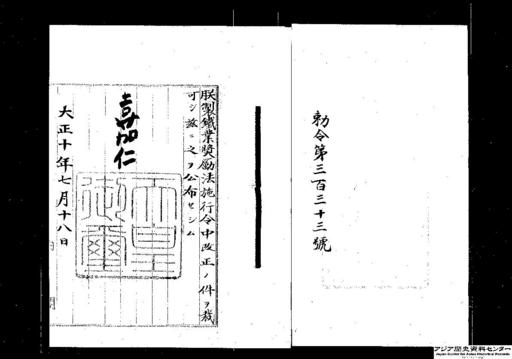 勅令第三百三十三號
朕製鐵業奬勵法施行令中改正ノ件ヲ裁
可シ茲ニ之ヲ公布セシム
嘉仁
天皇御璽
大正十年七月十八日
アジア歴史資料センター
Japan Center for Asian Historical Records